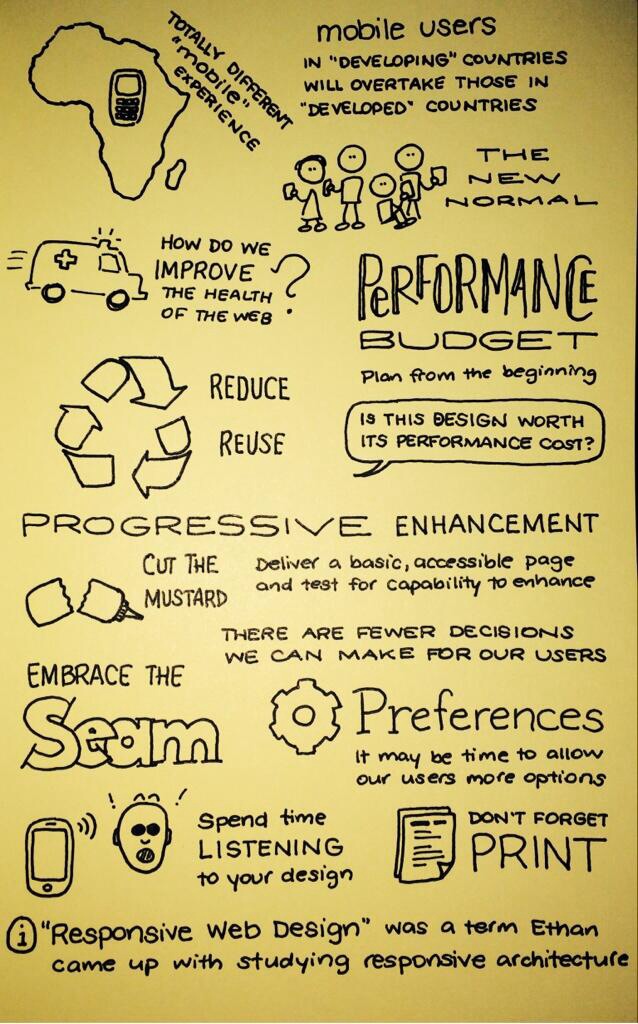 TOTALLY DIFFERENT
"mobile"
EXPERIENCE
mobile users
IN "DEVELOPING" COUNTRIES
WILL OVERTAKE THOSE IN
"DEVELOPED" COUNTRIES
THE
NEW
NORMAL
HOW DO WE
IMPROVE
THE HEALTH
OF THE WEB?
PERFORMANCE
BUDGET
Plan from the beginning
IS THIS DESIGN WORTH
ITS PERFORMANCE COST?
REDUCE
REUSE
PROGRESSIVE ENHANCEMENT
CUT THE
MUSTARD
Deliver a basic, accessible page
and test for capability to enhance
THERE ARE FEWER DECISIONS
WE CAN MAKE FOR OUR USERS
EMBRACE THE
Seam
Preferences
It may be time to allow
our users more options
Spend time
LISTENING
to your design
DON'T FORGET
PRINT
i "Responsive Web Design" was a term Ethan
came up with studying responsive architecture